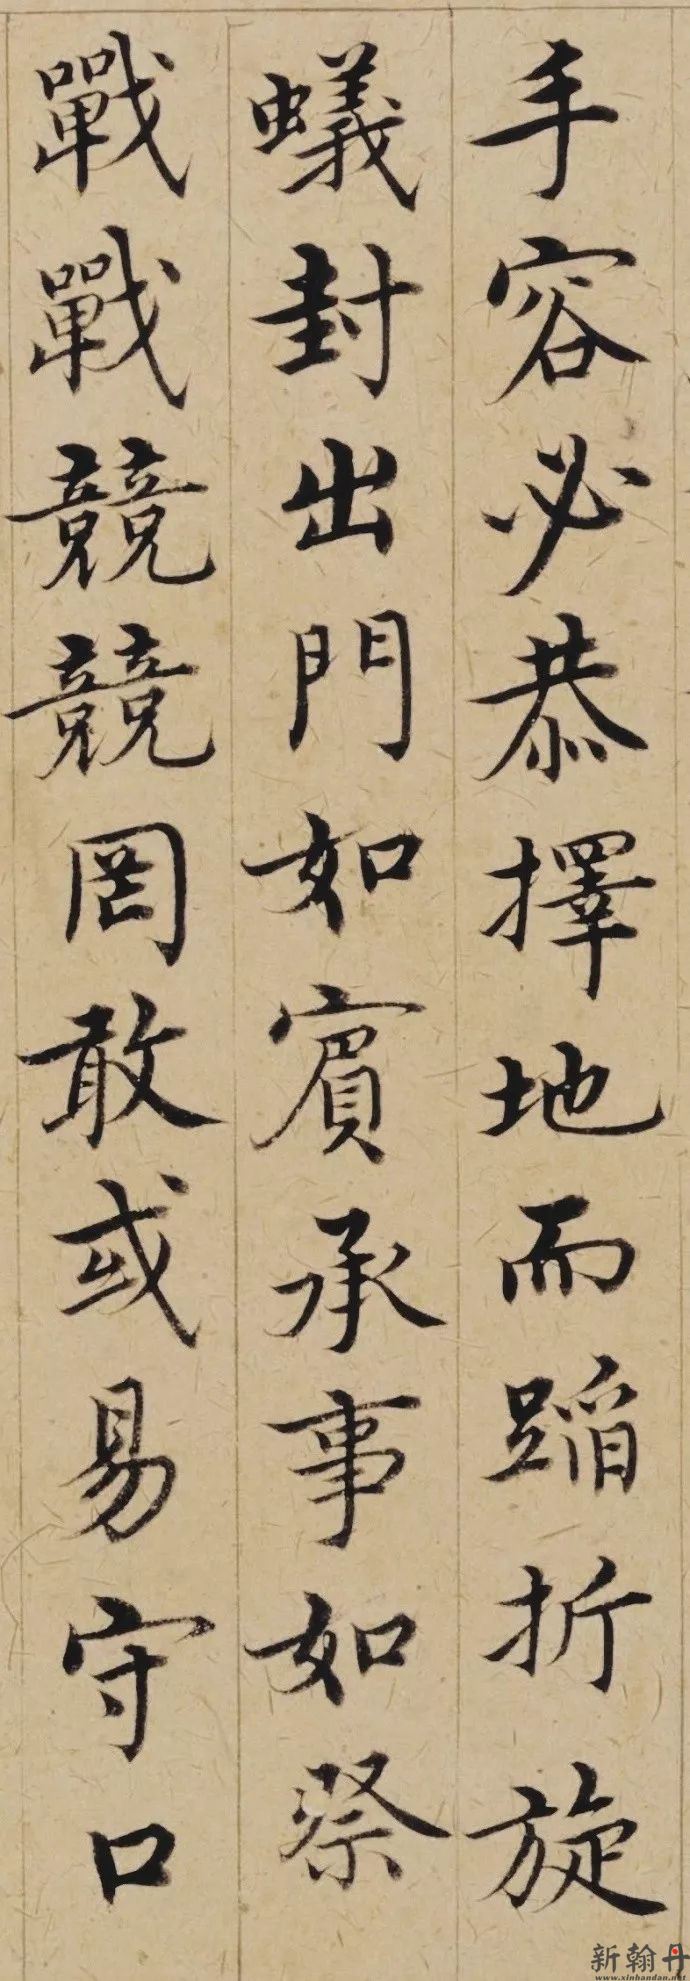 手容必恭擇地而蹈折旋
蟻封出門如賓承事如祭
戰戰競競罔敢或易守口
新翰丹
www.xinhandan.net